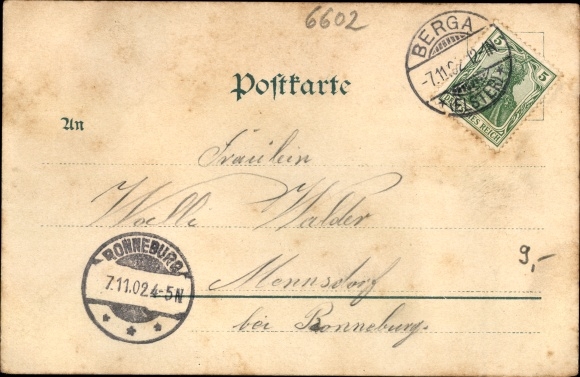 6602
BERGA
-7.11.02. 12-1N
* (ELSTER) *
5 5
DEUTSCHES REICH
Postkarte
An
Fräulein
Welli Walder
RONNEBURG
7.11.02.4-5N
* * *
9,-
Mennsdorf
bei Ronneburg.